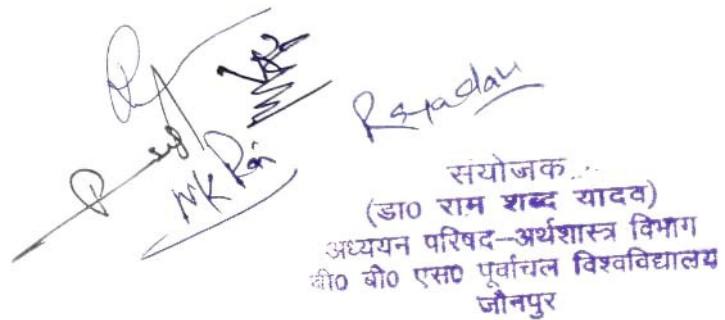 MK Rai
RSYadav
संयोजक
(डा0 राम शब्द यादव)
अध्ययन परिषद-अर्थशास्त्र विभाग
वी0 बी0 एस0 पूर्वांचल विश्वविद्यालय
जौनपुर